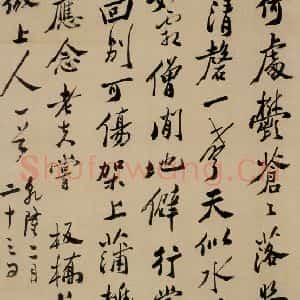 何處鬱蒼〻落照
清磬一聲天似水
如霜僧閒地僻行
回別可傷架上蒲
應念老夫嘗 板橋
上人一笑 乾隆二月
二十三日
Shufawang.cn